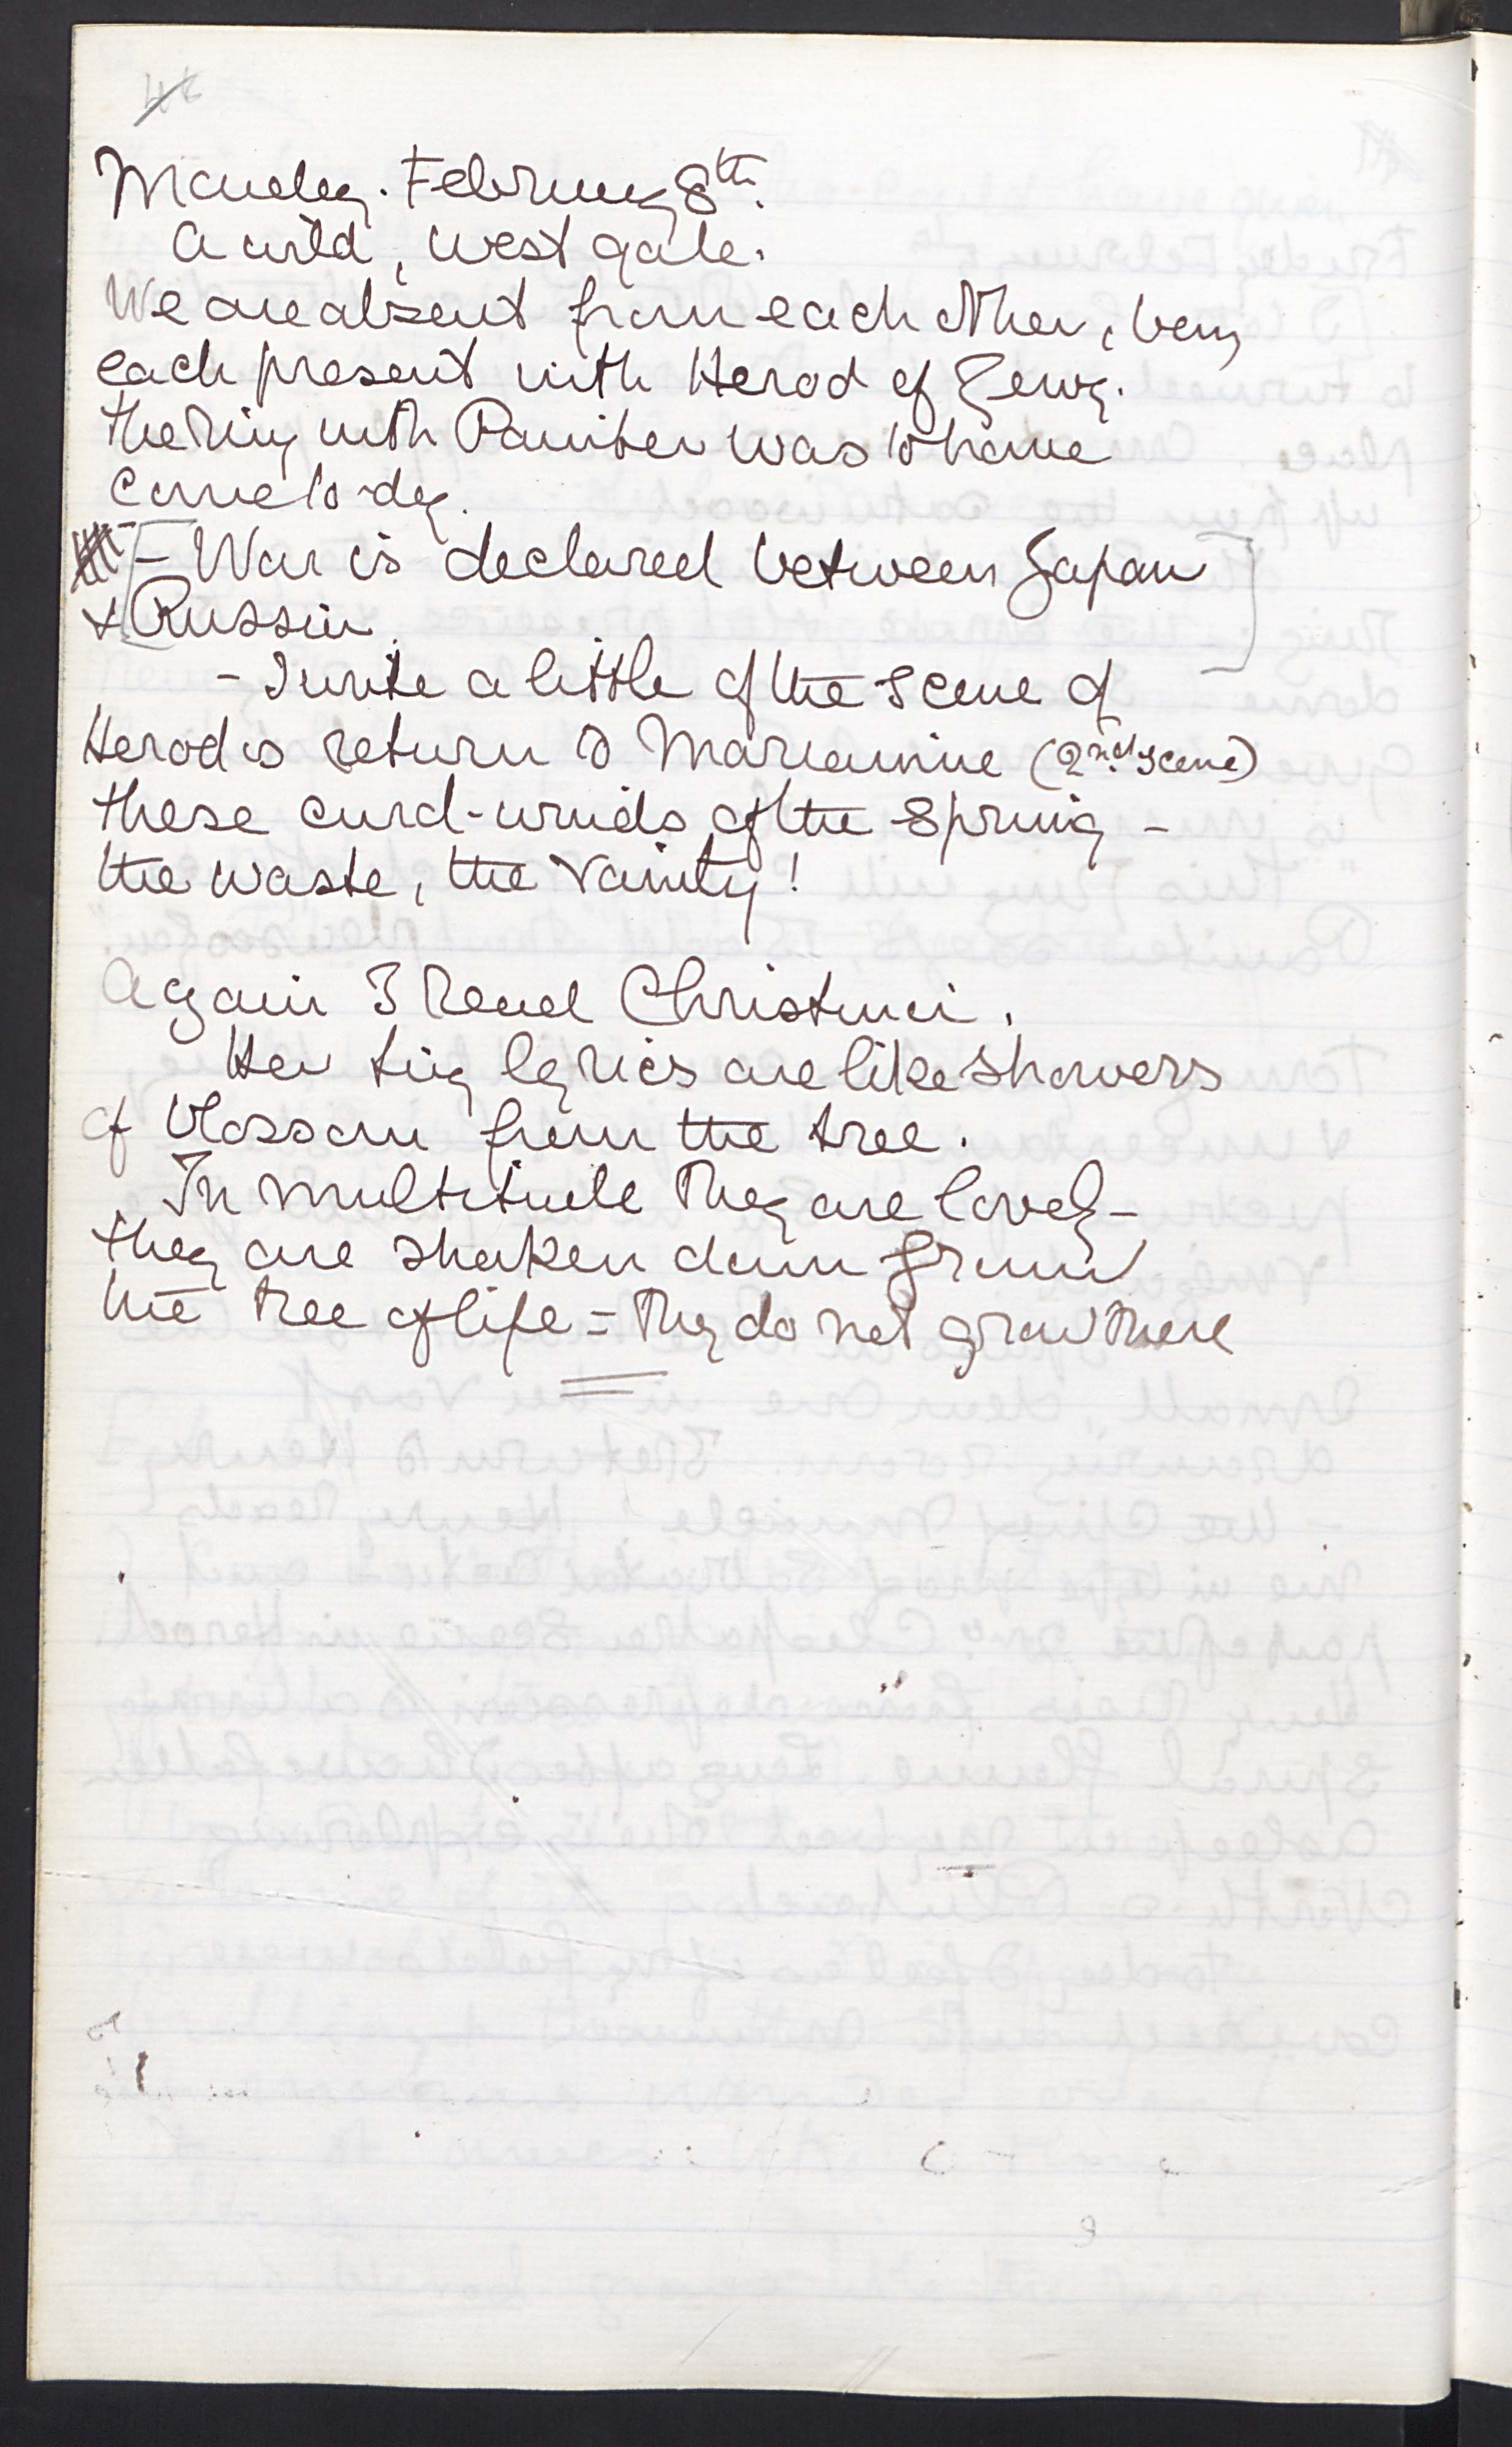 Monday. February 8th.
A wild, west gale.
We are absent from each other, being
each present with Herod of Jewry.
The King with Painter was to have
come to-day.
[- War is declared between Japan
& Russia.]
- I write a little of the scene of
Herod's return to Mariamne (2nd scene)
These curd-winds of the Spring -
the waste, the vanity!
Again I read Christina.
Her tiny lyrics are like showers
of blossom from the tree.
In multitude they are lovely -
they are shaken down from
the tree of life - they do not grow there